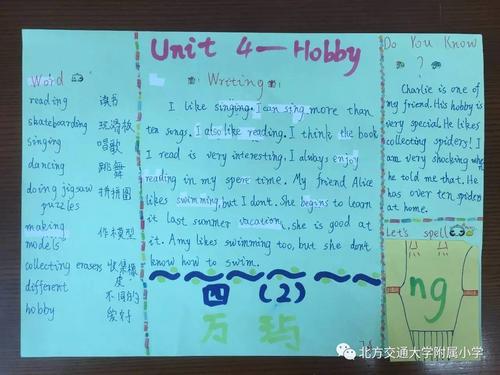 Unit 4 — Hobby
Word
reading 读书
skateboarding 玩滑板
singing 唱歌
dancing 跳舞
doing jigsaw puzzles 拼拼图
making models 作木模型
collecting erasers 收集橡皮
different 不同的
hobby 爱好
Writing
I like singing. I can sing more than
ten songs. I also like reading. I think the book
I read is very interesting. I always enjoy
reading in my spere time. My friend Alice
likes swimming, but I don't. She begins to learn
it last summer vacation. she is good at
it. Amy likes swimming too, but she don't
know how to swim.
四 (2)
万
Do You Know
?
Charlie is one of
my friend. His hobby is
very special. He likes
collecting spiders! I
am very shocking when
he told me that. He
has over ten spiders
at home.
Let's spell
ng
北方交通大学附属小学